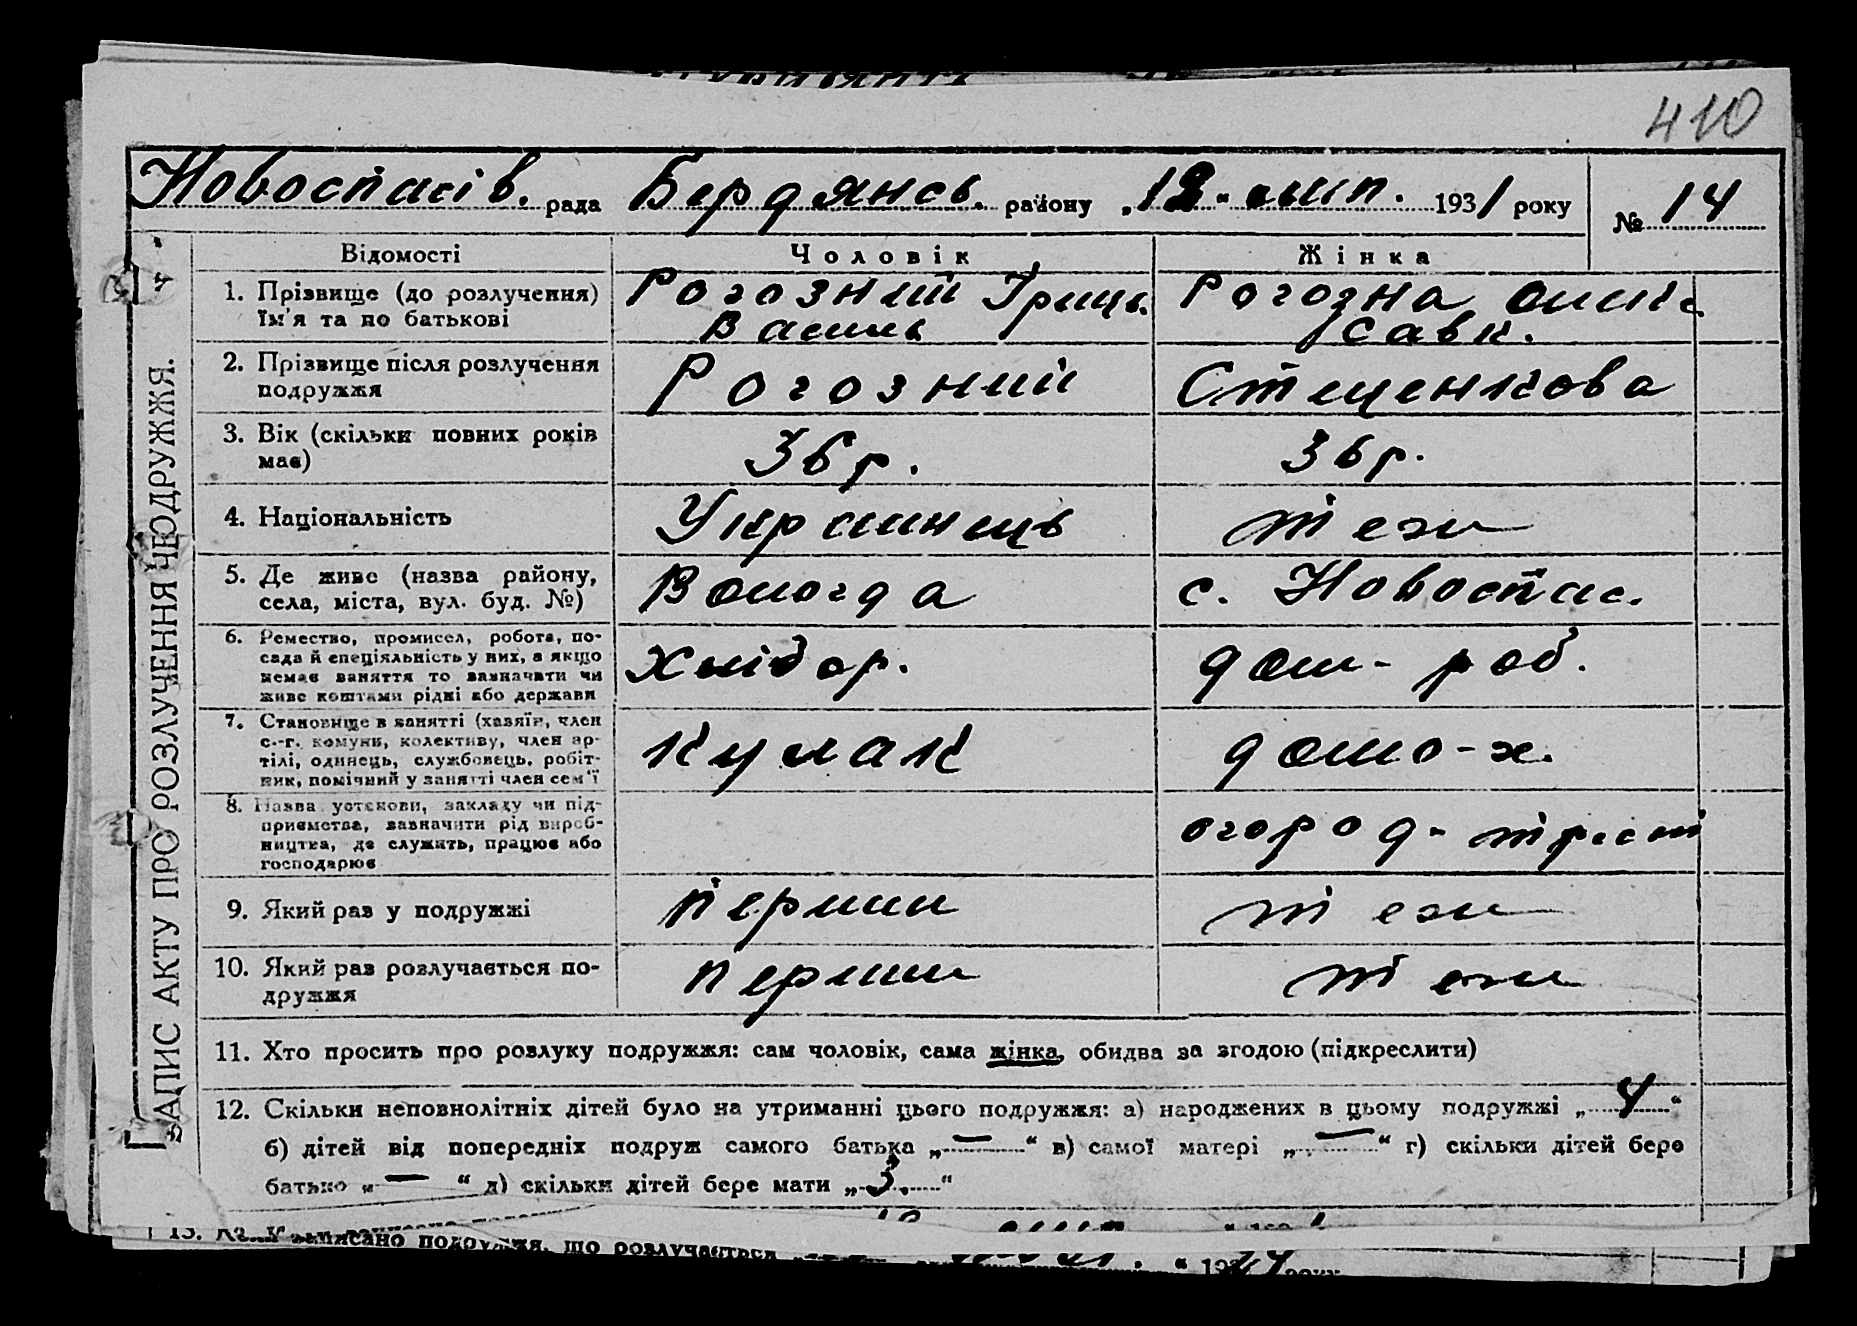 410
Новоспасів. рада Бердянсь. району „12“ лип. 1931 року № 14
ЗАПИС АКТУ ПРО РОЗЛУЧЕННЯ ПОДРУЖЖЯ.
Відомості Чоловік Жінка
1. Прізвище (до розлучення) Рогозний Гриць. Рогозна
ім'я та по батькові Василь. Савк.
2. Прізвище після розлучення Рогозний Стеценкова
подружжя
3. Вік (скільки повних років 36 р. 36 р.
має)
4. Національність Украинець теж
5. Де живе (назва району, Вологда с. Новоспас.
села, міста, вул. буд. №)
6. Ремество, промисел, робота, по- Хлібор. дом-роб.
сада й спеціяльність у них, а якщо
немає заняття то зазначити чи
живе коштами рідні або держави
7. Становище в занятті (хазяїн, член кулак домо-х.
с.-г. комуни, колективу, член ар-
тілі, одинець, службовець, робіт-
ник, помічний у занятті член сем'ї
8. Назва установи, закладу чи під- огород-трест
приємства, зазначити рід вироб-
ництва, де служить, працює або
господарює
9. Який раз у подружжі перший теж
10. Який раз розлучається по- перший теж
дружжя
11. Хто просить про розлуку подружжя: сам чоловік, сама жінка, обидва за згодою (підкреслити)
12. Скільки неповнолітніх дітей було на утриманні цього подружжя: а) народжених в цьому подружжі „4“
б) дітей від попередніх подруж самого батька „—“ в) самої матері „—“ г) скільки дітей бере
батько „—“ д) скільки дітей бере мати „3.“
13.
записано подружжя, що розлучається